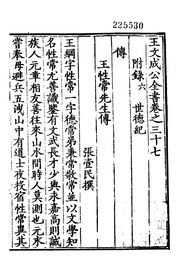 225530
王文成公全書卷之三十七
附錄六 世德紀
傳
王性常先生傳
張壹民撰
王綱字性常一字德常弟秉常敬常並以文學知
名性常尤善識鑒有文武長才少與永嘉高則誠
族人元章相友善往來山水間時人莫測也元末
嘗奉母避兵五洩山中有道士夜投宿性常異其